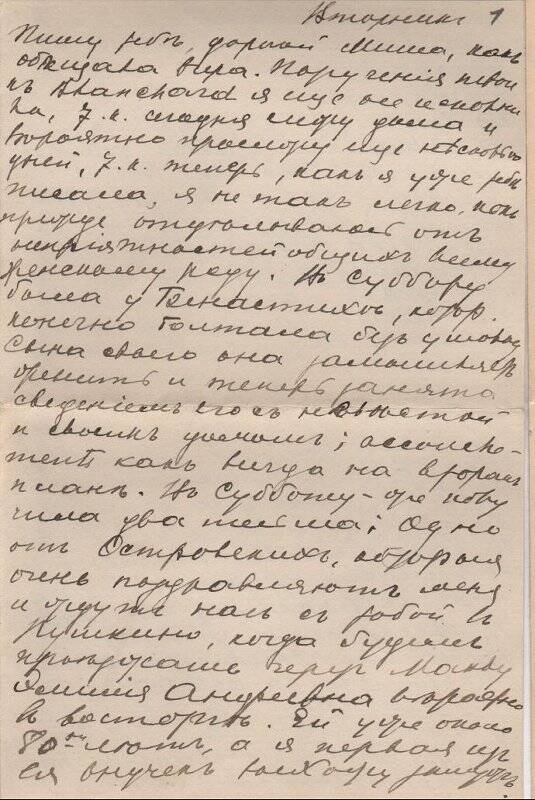 Вторникъ 1
Пишу тебѣ, дорогой Миша, какъ
обѣщала вчера. Порученія твои
къ Blanchard я еще не исполни
ла, т.к. сегодня сижу дома и
вѣроятно просижу еще нѣсколько
дней, т.к. теперь, какъ я уже тебѣ
писала, я не такъ легко, какъ
прежде отдѣлываюсь отъ
непріятностей общихъ всему
женскому роду. Въ субботу
была у, котор.
конечно болтала безъ умолку
сына своего она
и теперь занята
сведеніемъ его съ невѣстой
и своимъ;
какъ всегда на второмъ
планѣ. Въ субботу-же полу
чила два письма; одно
отъ Островскихъ, которые
очень поздравляютъ меня
и ждутъ насъ съ тобой въ
Пушкино, когда будемъ
проѣзжать черезъ Москву
Андреевна вѣроятно
въ восторгѣ. Ей уже около
80ти лѣтъ, а я первая изъ
ея внучекъ выхожу замужъ.